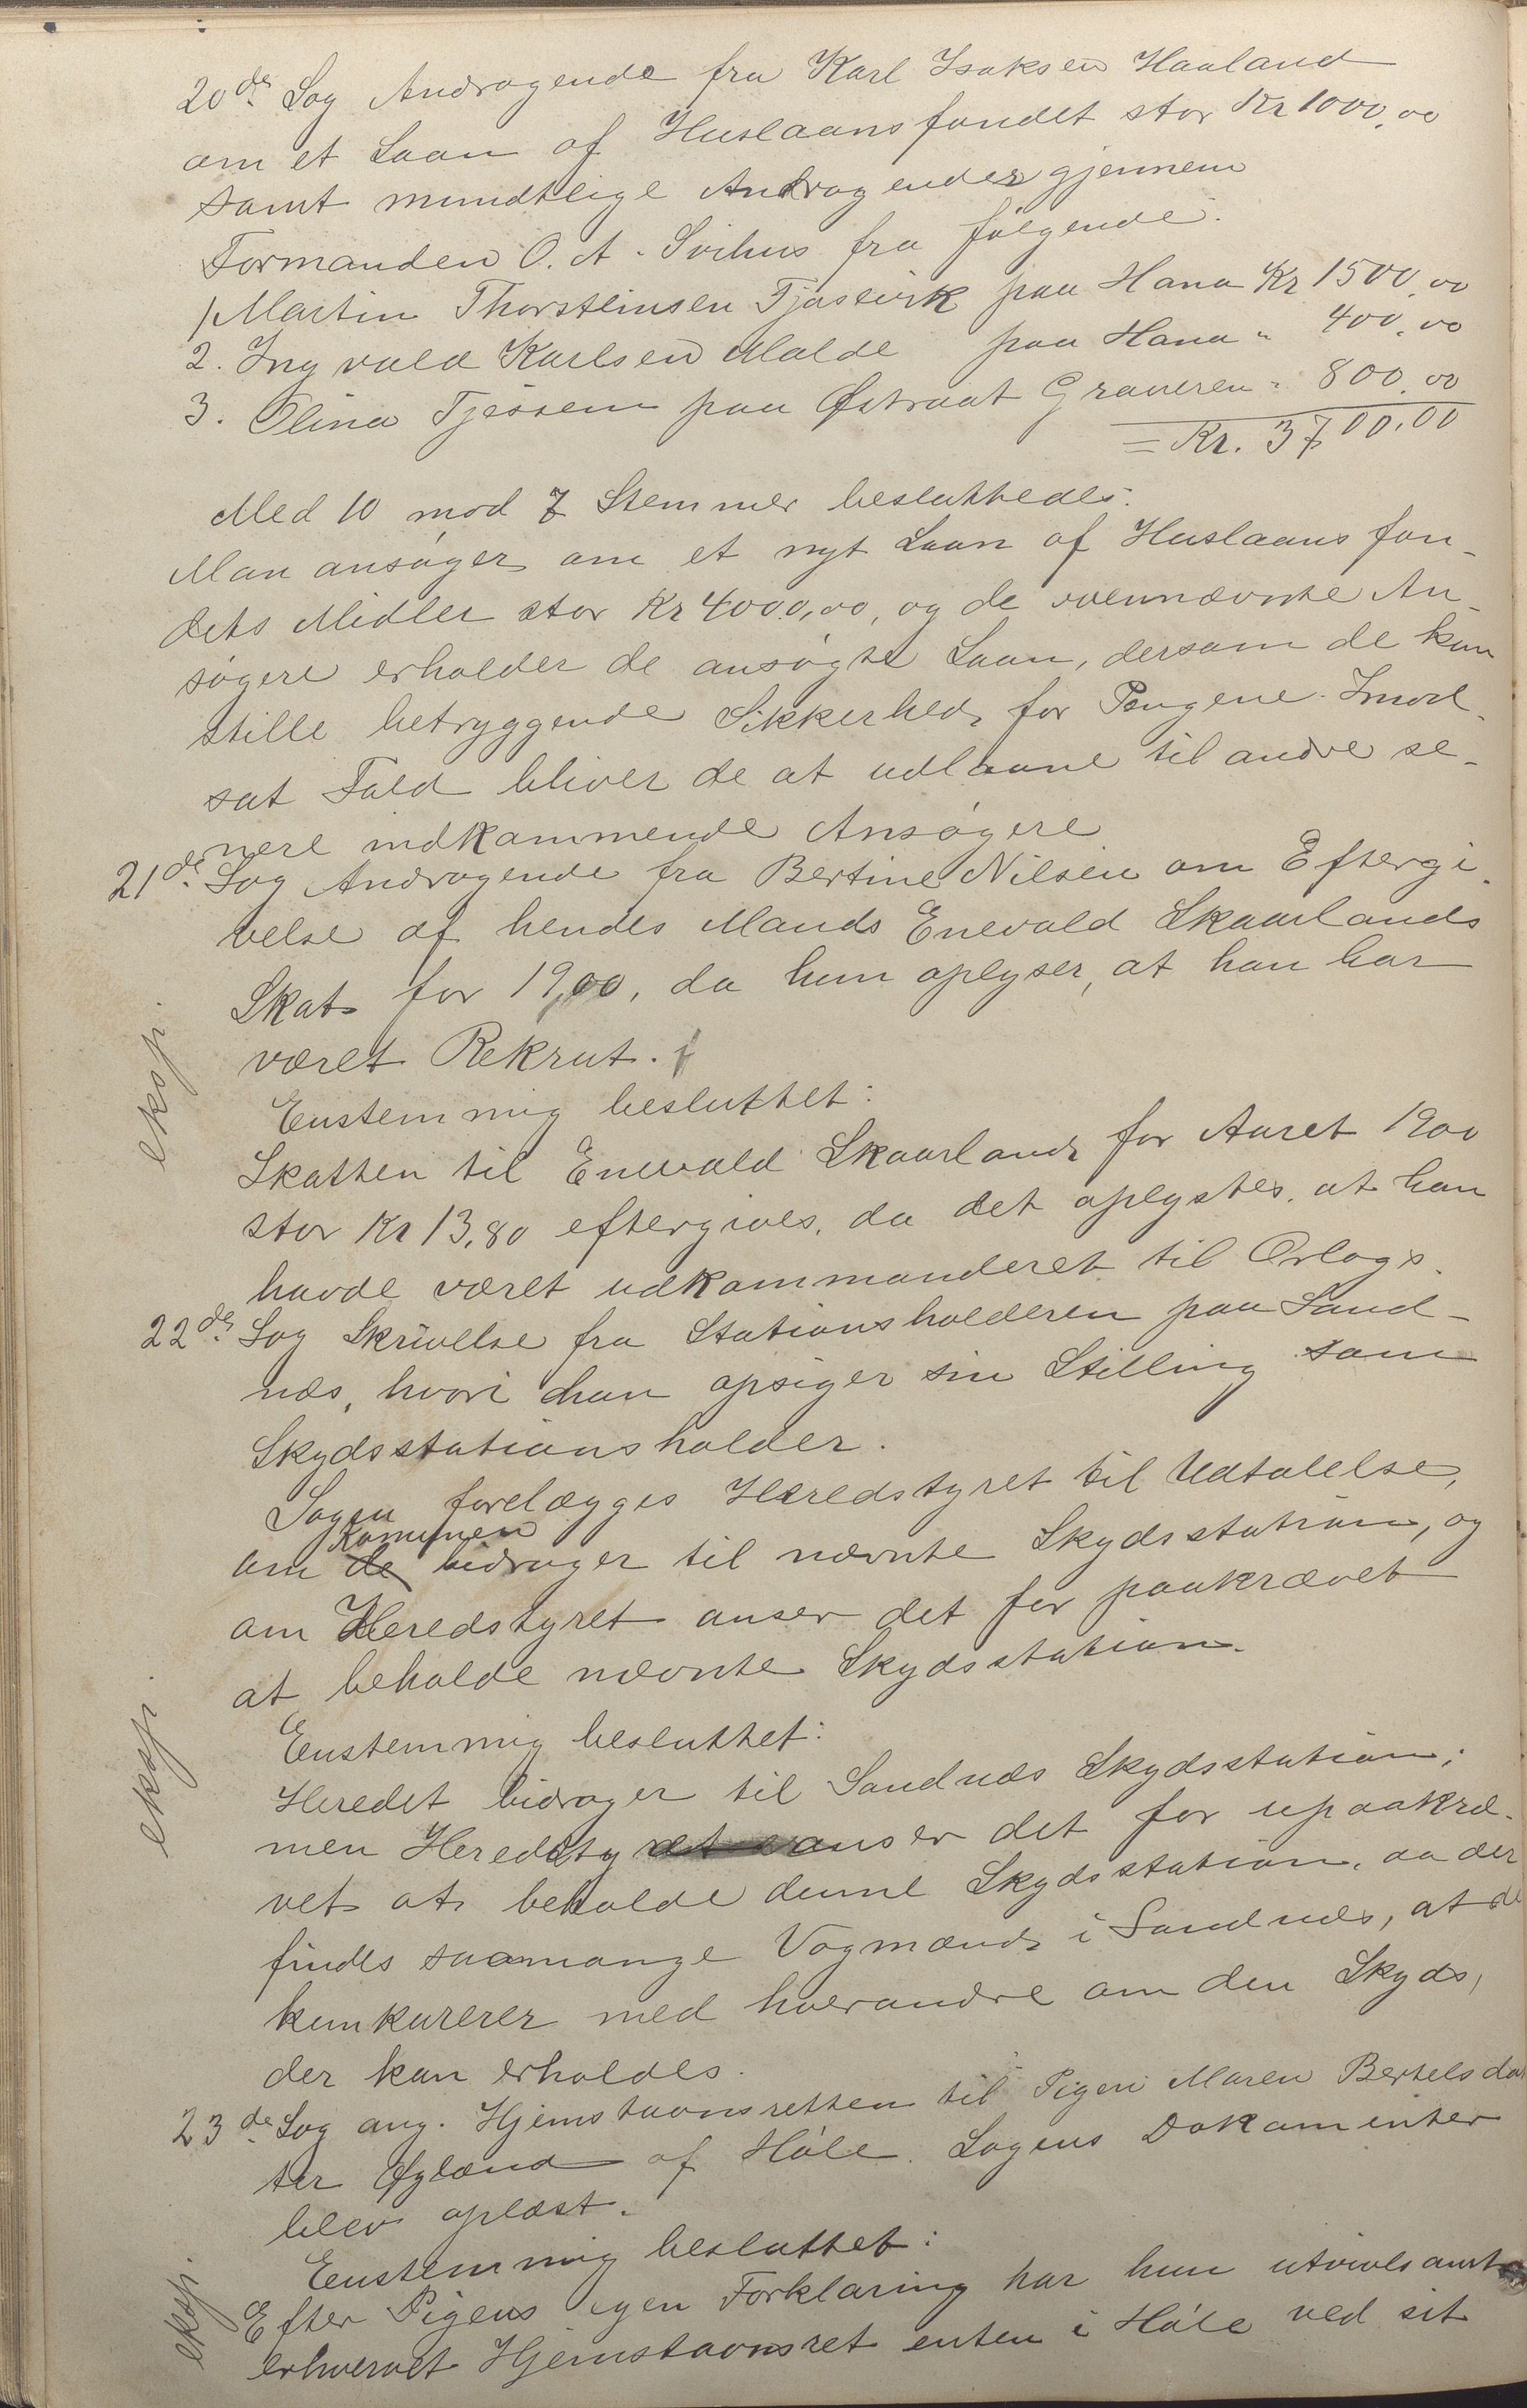 20de Sag Andragende fra Karl Isaksen Haaland
om et Laan af Huslaansfondet stor Kr 1000,00
samt mundtlige Andragender gjennem
Formanden O. A. Svihus fra følgende:
1/ Martin Thorsteinsen Tjosevik paa Hana Kr 1500,00
2. Ingvald Karlsen Malde paa Hana " 400,00
3. Olina Tjessem paa Østraat Graveren " 800,00
= Kr. 3700,00
Med 10 mod 7 Stemmer besluttedes:
Man ansøger om et nyt Laan af Huslaansfon-
dets Midler stor Kr 4000,00, og de ovennævnte An-
søgere erholder de ansøgte Laan, dersom de kan
stille betryggende Sikkerhed for Pengene. Imod-
sat Fald bliver de at udlaane til andre se-
nere indkommende Ansøgere
21de Sag Andragende fra Bertine Nilsen om Eftergi-
velse af hendes Mands Enevald Skaarlands
Skat for 1900, da hun oplyser, at han har
været Rekrut.
eksp.
Enstemmig besluttet:
Skatten til Enevald Skaarland for Aaret 1900
stor Kr 13,80 eftergives, da det oplystes, at han
havde været udkommanderet til Orlogs.
22de Sag Skrivelse fra Stationsholderen paa Sand-
næs, hvori han opsiger sin Stilling som
Skydsstationsholder.
Sagen forelægges Heredstyret til Udtalelse,
Komunen
om de bidrager til nævnte Skydsstation, og
om Heredstyret anser det for paakrævet
at beholde nævnte Skydsstation.
eksp.
Enstemmig besluttet:
Heredet bidrager til Sandnæs Skydsstation;
men Heredsty ret anser det for upaakræ-
vet at beholde denne Skydsstation, da der
findes saamange Vogmænd i Sandnæs, at de
kunkurerer med hverandre om den Skyds,
der kan erholdes.
23de Sag ang. Hjemstavnsretten til Pigen Maren Bertelsdat
ter Øgland af Høle. Sagens Dokumenter
blev oplæst.
Enstemmig besluttet:
eksp.
Efter Pigens egen Forklaring har hun utvivlsomt
erhvervet Hjemstavnsret enten i Høle ved sit